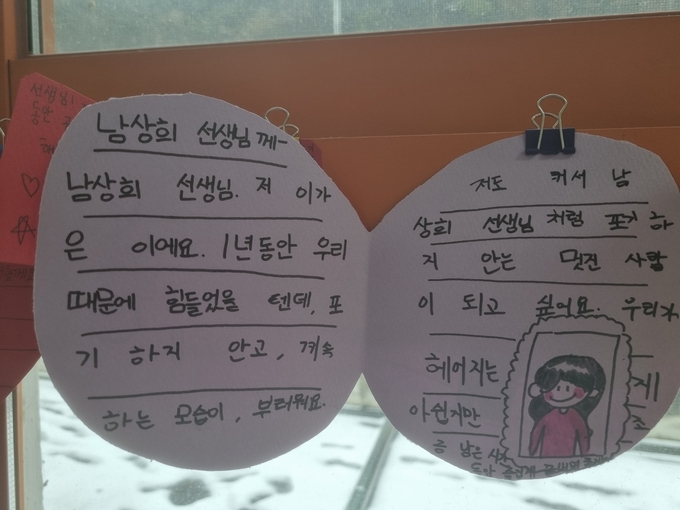 남상희 선생님께-
남상희 선생님. 저 이가
은 이예요. 1년동안 우리
때문에 힘들었을 텐데, 포
기 하지 안고, 계속
하는 모습이, 부러워요.
저도 커서 남
상희 선생님 처럼 포기 하
지 안는 멋진 사람
이 되고 싶어요. 우리가
헤어지는 게
아쉽지만 조
금 남은
선생님!
동안
해